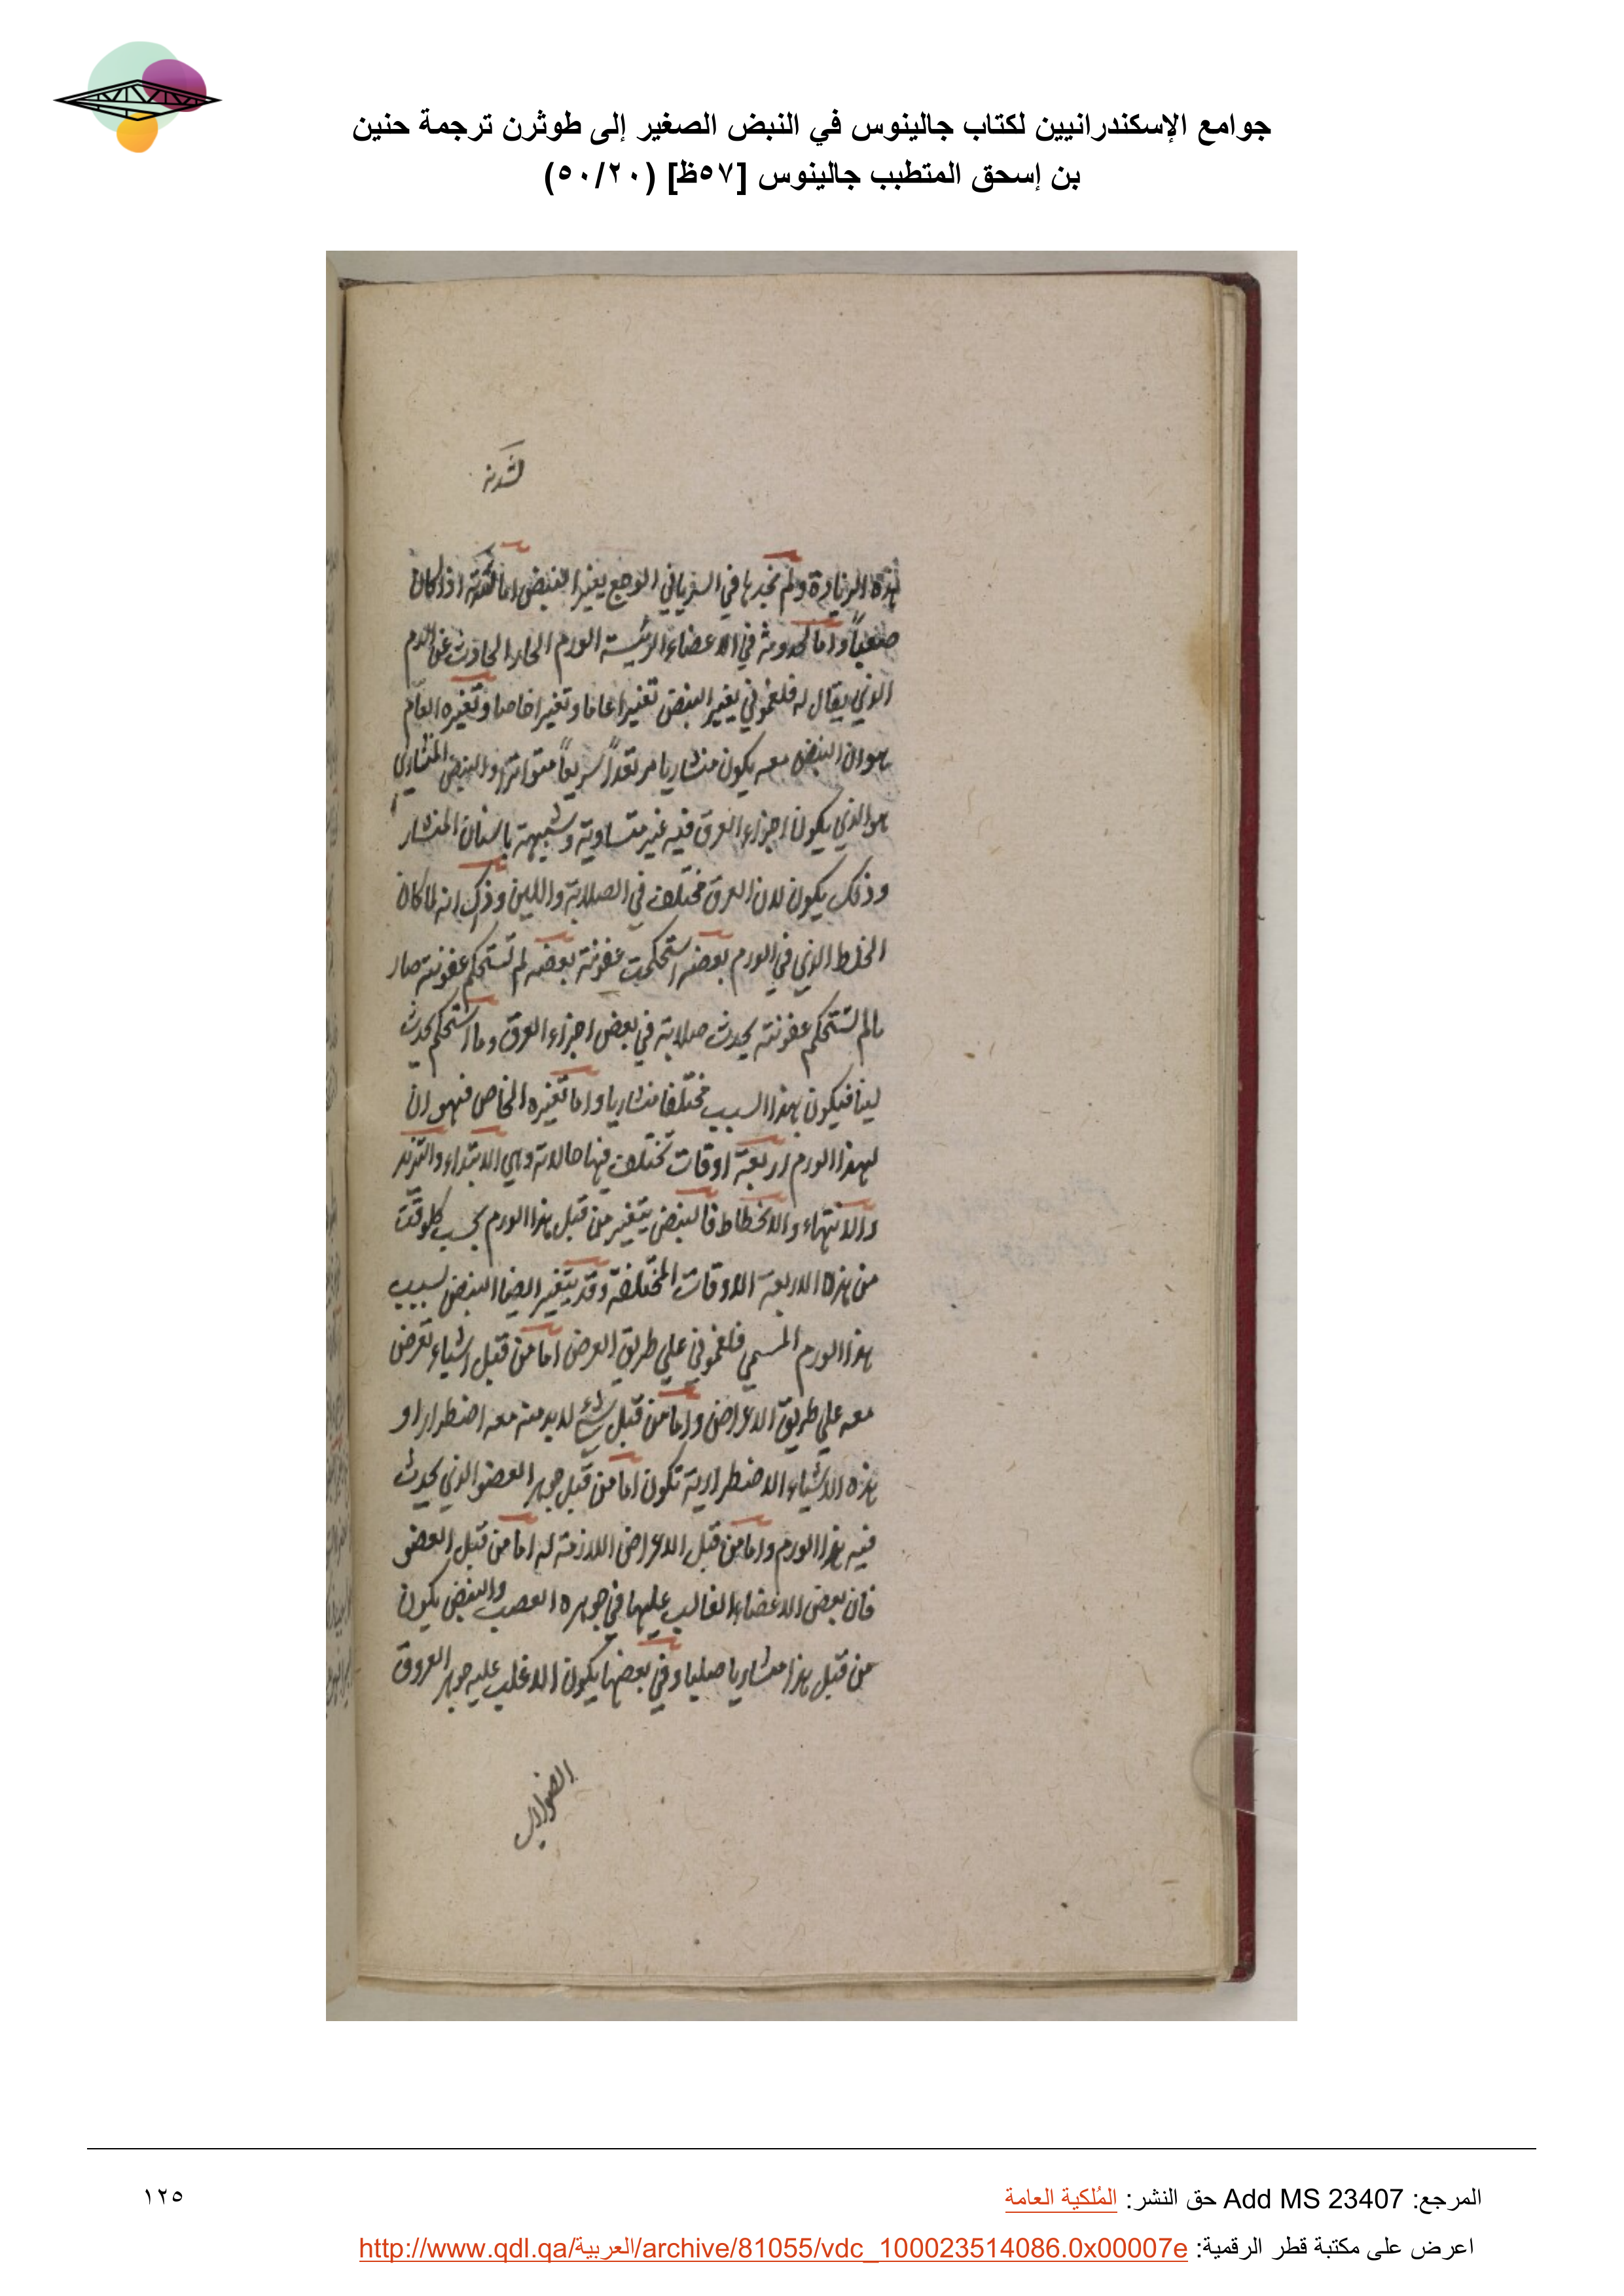 جوامع الإسكندرانيين لكتاب جالينوس في النبض الصغير إلى طوثرن ترجمة حنين
بن إسحق المتطبب جالينوس [٥٧ظ] (٥٠/٢٠)
لشدته
هذه الزيادة ولم نجدها في السرياني الوجع يغير النبض اما لشدته اذا كان
صعباً واما لحدوثه في الاعضاء الرئيسة الورم الحار الحادث عن الدم
الذي يقال له فلغموني يغير النبض تغييرا عاما وتغييرا خاصا وتغيره العام
هو ان النبض معه يكون منشاريا مرتعداً سريعاً متواترا والنبض المنشاري
هو الذي يكون اجزاء العرق فيه غير متساوية وشبيهة باسنان المنشار
وذلك يكون لان العرق مختلف في الصلابة واللين وذلك انه لما كان
الخلط الذي في الورم بعضه استحكمت عفونته بعضه لم تستحكم عفونته صار
مالم تستحكم عفونته يحدث صلابة في بعض اجزاء العرق وما استحكم يحدث
لينا فيكون بهذا السبب مختلفا منشاريا واما تغيره الخاص فهو ان
لهذا الورم اربعة اوقات تختلف فيها حالاته وهي الابتداء والتزيد
والانتهاء والانحطاط فالنبض يتغير من قبل هذا الورم بحسب كل وقت
من هذه الاربعة الاوقات المختلفة وقد يتغير ايضا النبض بسبب
هذا الورم المسمي فلغموني علي طريق العرض اما من قبل اشياء تعرض
معه علي طريق الاعراض واما من قبل شيء لابد منه معه اضطرارا و
هذه الاشياء الاضطرارية تكون اما من قبل جوهر العضو الذي يحدث
فيه هذا الورم واما من قبل الاعراض اللازمة له اما من قبل العضو
فان بعض الاعضاء الغالب عليها في جوهره العصب والنبض يكون
من قبل هذا منشاريا صلبا وفي بعضها يكون الاغلب عليه جوهر العروق
الضوارب
المرجع: Add MS 23407 حق النشر: المُلكية العامة
١٢٥
اعرض على مكتبة قطر الرقمية: http://www.qdl.qa/العربية/archive/81055/vdc_100023514086.0x00007e